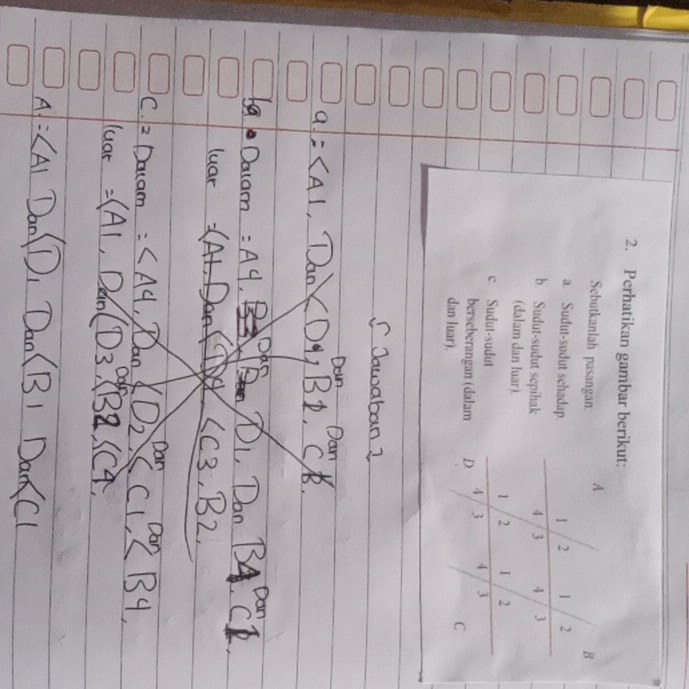 2. Perhatikan gambar berikut:
Sebutkanlah pasangan.
a. Sudut-sudut sehadap
b. Sudut-sudut sepihak
(dalam dan luar).
c. Sudut-sudut
berseberangan (dalam
dan luar).
A B
1 2 1 2
4 3 4 3
1 2 1 2
D 4 3 4 3 C
{ Jawaban }
a. = <A1, Dan <D4, Dan B1, Dan C
b. Dalam = A4, Dan D1, Dan B4, Dan C1,
luar = <A1, Dan <D4 <C3, B2,
C. = Dalam = <A4, Dan <D2 Dan <C1, Dan <B4,
luar = <A1, Dan <D3 Dan <B2, <C4,
A. = <A1 Dan <D1 Dan <B1 Dan <C1